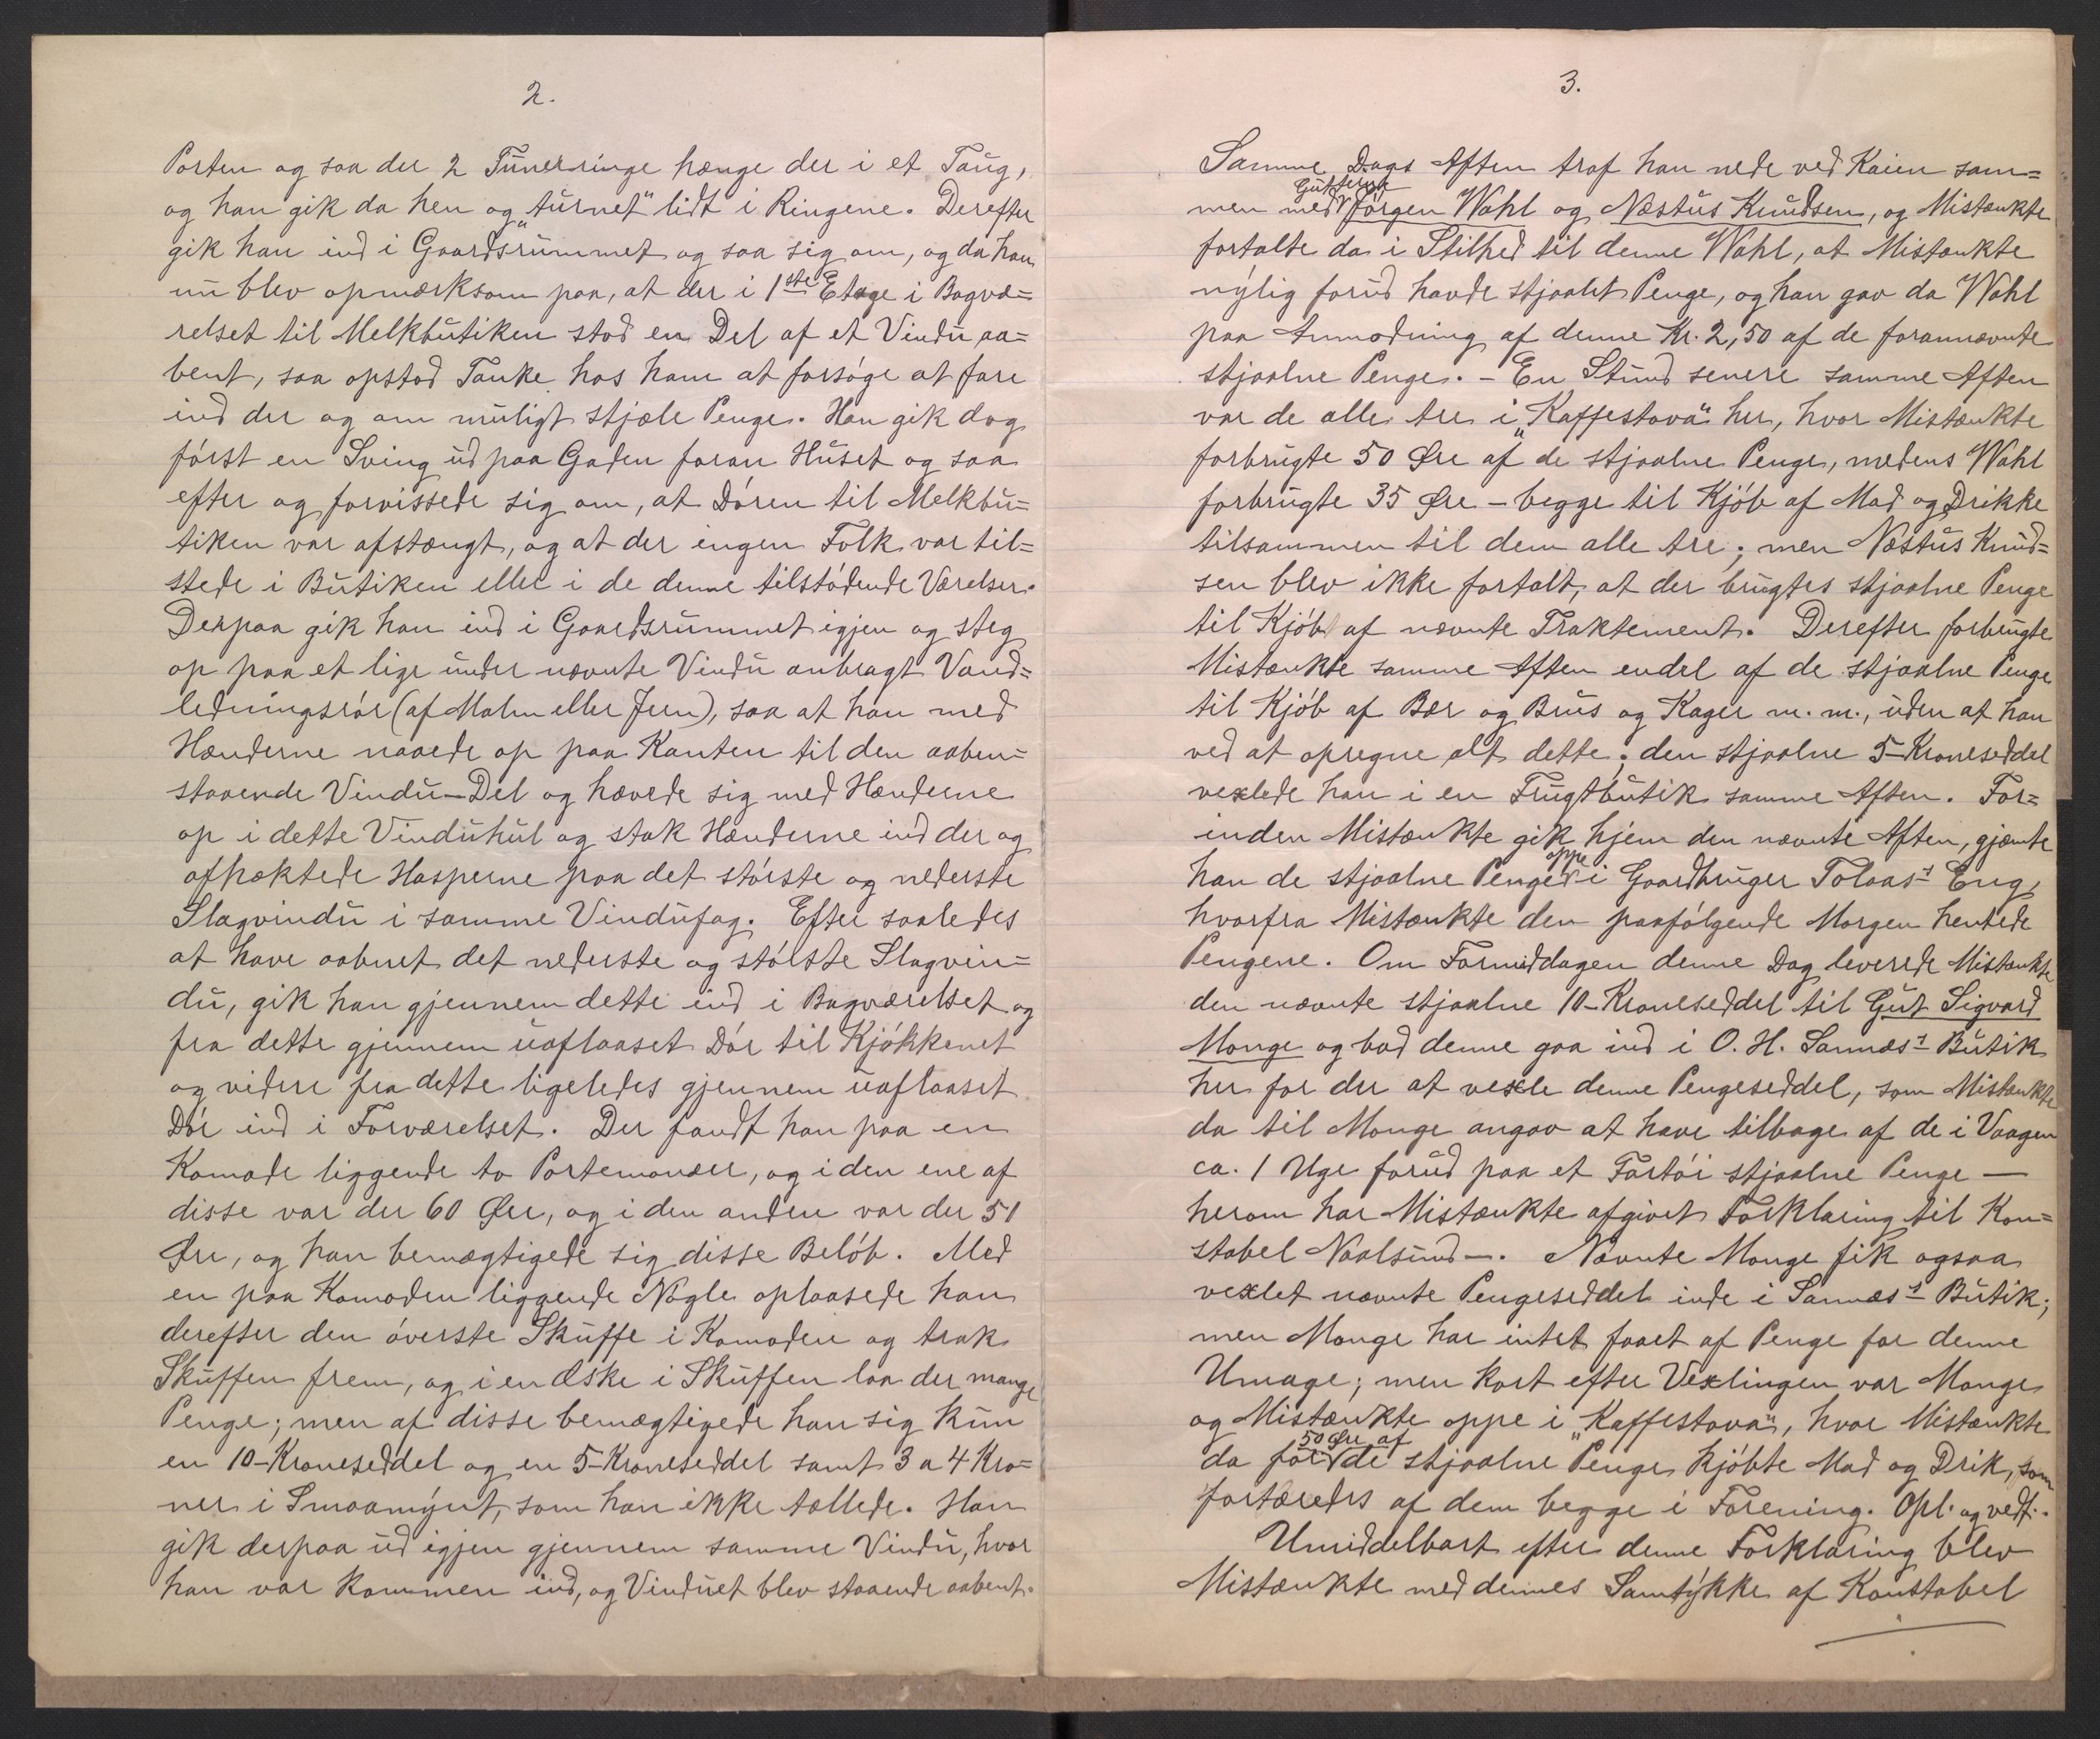 2.
Porten og saa der 2 Tünerringe hænge der i et Taug,
og han gik da hen og „turnet“ lidt i Ringene. Derefter
gik han ind i Gaardsrummet og saa sig om, og da han
nu blev opmærksom paa, at der i 1ste Etage i Bagvæ=
relset til Melkbutiken stod en Del af et Vindu aa=
bent, saa opstod Tanke hos ham at forsøge at fare
ind der og om muligt stjæle Penge. Han gik dog
først en Sving ud paa Gaden foran Huset og saa
efter og forvissede sig om, at Døren til Melkbu=
tiken var afstængt, og at der ingen Folk var til=
stede i Butiken eller i de denne tilstødende Værelser.
Derpaa gik han ind i Gaardsrummet igjen og steg
op paa et lige under nævnte Vindu anbragt Vand=
ledningsrør (af Malm eller Jern), saa at han med
Hænderne naaede op paa Kanten til den aaben=
staaende Vindu-Del og hævede sig med Hænderne
op i dette Vinduhul og stak Hænderne ind der og
afhæktede Hasperne paa det største og nederste
Slagvindu i samme Vindufag. Efter saaledes
at have aabnet det nederste og største Slagvin=
du, gik han gjennem dette ind i Bagværelset og
fra dette gjennem uaflaaset Dør til Kjøkkenet
og videre fra dette ligeledes gjennem uaflaaset
Dør ind i Forværelset. Der fandt han paa en
Komode liggende to Portemonæer, og i den ene af
disse var der 60 Øre, og i den anden var der 51
Øre, og han bemægtigede sig disse Beløb. Med
en paa Komoden liggende Nøgle oplaasede han
derefter den øverste Skuffe i Komoden og trak
Skuffen frem, og i en Æske i Skuffen laa der mange
Penge; men af disse bemægtigede han sig kun
en 10-Kroneseddel og en 5-Kroneseddel samt 3 a 4 Kro=
ner i Smaamynt, som han ikke tællede. Han
gik derpaa ud igjen gjennem samme Vindu, hvor
han var kommen ind, og Vinduet blev staaende aabent.
3.
Samme Dags Aften traf han nede ved Kaien sam=
men med Gutterne Jørgen Wahl og Næstus Knudsen, og Mistænkte
fortalte da i Stilhed til denne Wahl, at Mistænkte
nylig forud havde stjaalet Penge, og han gav da Wahl
paa Anmodning af denne Kr. 2,50 af de forannævnte
stjaalne Penge. – En Stund senere samme Aften
var de alle tre i „Kaffestova“ her, hvor Mistænkte
forbrugte 50 Øre af de stjaalne Penge, medens Wahl
forbrugte 35 Øre – begge til Kjøb af Mad og Drikke
tilsammen til dem alle tre; men Næstus Knud=
sen blev ikke fortalt, at der brugtes stjaalne Penge
til Kjøb af nævnte Traktement. Derefter forbrugte
Mistænkte samme Aften endel af de stjaalne Penge
til Kjøb af Bær og Brus og Kager m. m., uden at han
ved at opregne alt dette; den stjaalne 5-Kroneseddel
vexlede han i en Frugtbutik samme Aften. For=
inden Mistænkte gik hjem den nævnte Aften, gjemte
han de stjaalne Penge oppe i Gaardbruger Tolaas's Eng,
hvorfra Mistænkte den paafølgende Morgen hentede
Pengene. Om Formiddagen denne Dag leverede Mistænkte
den nævnte stjaalne 10-Kroneseddel til Gut Sigvard
Monge og bad denne gaa ind i O. H. Sannæs's Butik
her for der at vexle denne Pengeseddel, som Mistænkte
da til Monge angav at have tilbage af de i Vaagen
ca. 1 Uge forud paa et Fartøi stjaalne Penge —
herom har Mistænkte afgivet Forklaring til Kon=
stabel Naalsund —. Nævnte Monge fik ogsaa
vexlet nævnte Pengeseddel inde i Sannæs's Butik;
men Monge har intet faaet af Penge for denne
Umage; men kort efter Vexlingen var Monge
og Mistænkte oppe i „Kaffestova“, hvor Mistænkte
da for 50 Øre af de stjaalne Penge kjøbte Mad og Drik, som
fortæredes af dem begge i Forening. Opl. og vedt.
Umiddelbart efter denne Forklaring blev
Mistænkte med dennes Samtykke af Konstabel